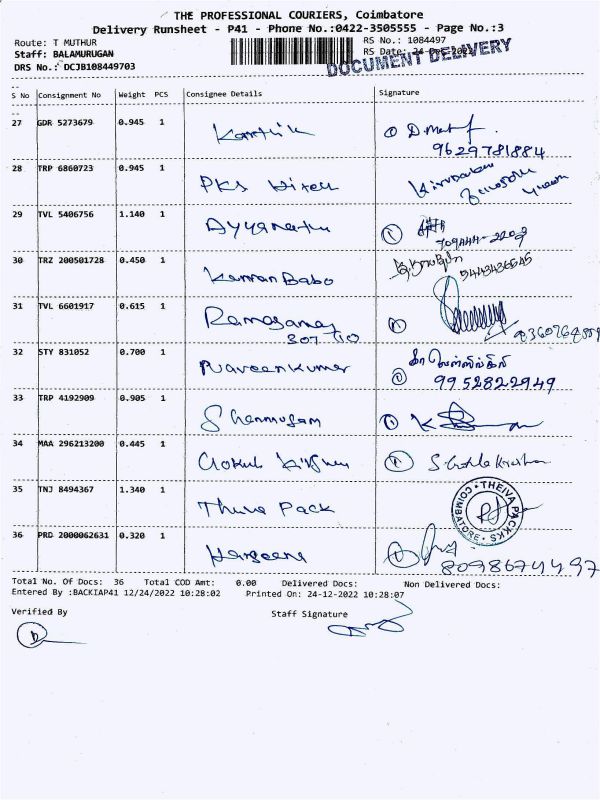 THE PROFESSIONAL COURIERS, Coimbatore
Delivery Runsheet - P41 - Phone No.:0422-3505555 - Page No.:3
Route: T MUTHUR RS No.: 1084497
Staff: BALAMURUGAN RS Date: 24-Dec-2022
DRS No.: DCJB108449703 DOCUMENT DELIVERY
S No Consignment No Weight PCS Consignee Details Signature
27 GDR 5273679 0.945 1 Karthik
9629781884
28 TRP 6860723 0.945 1 PKS
29 TVL 5406756 1.140 1 Ayyanathu
709444-2203
30 TRZ 200501728 0.450 1 Kannan Babo
9443436545
31 TVL 6601917 0.615 1 Ramasamy
32 STY 831052 0.700 1 Naveen Kumar
9952822949
33 TRP 4192909 0.905 1 Shanmugam
34 MAA 296213200 0.445 1 Gokul
35 TNJ 8494367 1.340 1 Thiva Pack
THEIVA PACKKS COIMBATORE
36 PRD 2000062631 0.320 1
8098674497
Total No. Of Docs: 36 Total COD Amt: 0.00 Delivered Docs: Non Delivered Docs:
Entered By :BACKIAP41 12/24/2022 10:28:02 Printed On: 24-12-2022 10:28:07
Verified By Staff Signature